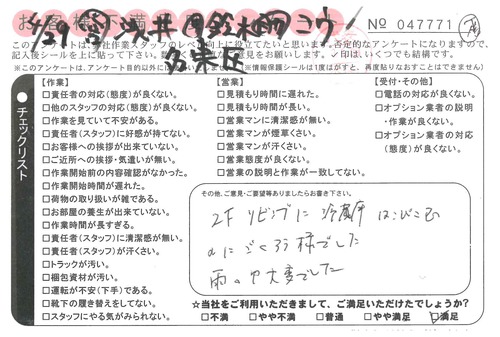 No 047771
このアンケートは、当社作業スタッフのレベル向上に役立てたいと思います。否定的なアンケートになりますので、
記入後シールを上に貼って下さい。 意見をお願いします。✓印は、いくつでも結構です。
※このアンケートは、アンケート目的以外に ※情報保護シールは1度がすと、再度貼りなおすことはできません
チェックリスト
【作業】
□責任者の対応(態度)が良くない。
□他のスタッフの対応(態度)が良くない。
□作業を見ていて不安がある。
□責任者(スタッフ)に好感が持てない。
□お客様への挨拶が出来ていない。
□ご近所への挨拶・気遣いが無い。
□作業開始前の内容確認がなかった。
□作業開始時間が遅れた。
□荷物の取り扱いが雑である。
□お部屋の養生が出来ていない。
□作業時間が長すぎる。
□責任者(スタッフ)に清潔感が無い。
□責任者(スタッフ)が汗くさい。
□トラックが汚い。
□梱包資材が汚い。
□運転が不安(下手)である。
□靴下の履き替えをしてない。
□スタッフにやる気がみられない。
【営業】
□見積もり時間に遅れた。
□見積もり時間が長い。
□営業マンに清潔感が無い。
□営業マンが煙草くさい。
□営業マンが汗くさい。
□営業態度が良くない。
□営業の説明と作業が一致してない。
【受付・その他】
□電話の対応が良くない。
□オプション業者の説明
・作業が良くない。
□オプション業者の対応
(態度)が良くない。
その他、ご意見・ご要望等ありましたらお書き下さい。
2F リビングに 冷蔵庫 はこびこむ
のに ごくろう様でした
雨の中大変でした
☆当社をご利用いただきまして、ご満足いただけたでしょうか?
□不満 □やや不満 □普通 □やや満足 ☑満足